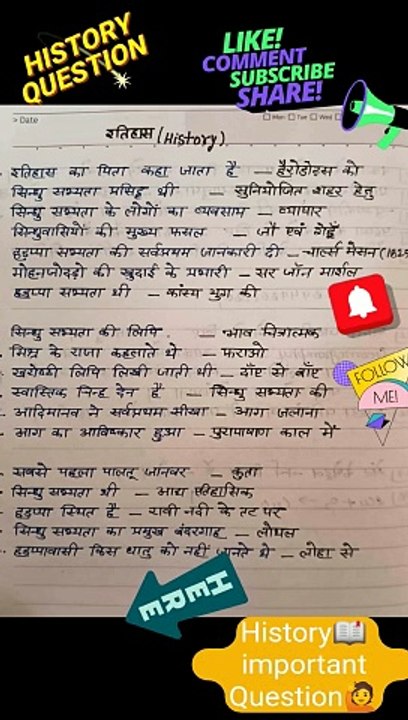 HISTORY
QUESTION
LIKE!
COMMENT
SUBSCRIBE
SHARE!
> Date
Mon Tue Wed
इतिहास (History)
इतिहास का पिता कहा जाता है — हैरोडोट्स को
सिन्धु सभ्यता प्रसिद्ध थी — सुनियोजित शहर हेतु
सिन्धु सभ्यता के लोगों का व्यवसाय — व्यापार
सिन्धुवासियों की मुख्य फसल — जौ एवं गेहूँ
हड़प्पा सभ्यता की सर्वप्रथम जानकारी दी — चार्ल्स मैसन
मोहनजोदड़ो की खुदाई के प्रभारी — सर जॉन मार्शल
हड़प्पा सभ्यता थी — कांस्य युग की
सिन्धु सभ्यता की लिपि — भाव चित्रात्मक
मिस्र के राजा कहलाते थे — फराओ
खरोष्ठी लिपि लिखी जाती थी — दाँए से बाँए
स्वास्तिक चिन्ह देन है — सिन्धु सभ्यता की
आदिमानव ने सर्वप्रथम सीखा — आग जलाना
आग का आविष्कार हुआ — पुरापाषाण काल में
सबसे पहला पालतू जानवर — कुत्ता
सिन्धु सभ्यता थी — आद्य ऐतिहासिक
हड़प्पा स्थित है — रावी नदी के तट पर
सिन्धु सभ्यता का प्रमुख बंदरगाह — लोथल
हड़प्पावासी किस धातु को नहीं जानते थे — लोहा से
FOLLOW
ME!
HERE
History
important
Question